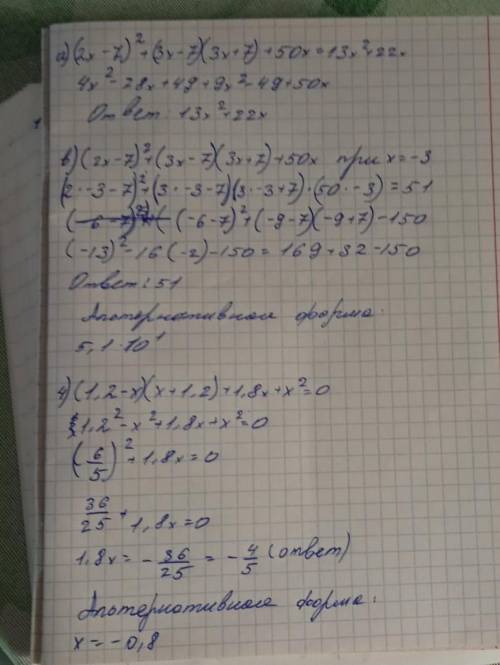 а) (2x-7)²+(3x-7)(3x+7)+50x=13x²+22x
4x²-28x+49+9x²-49+50x
Ответ: 13x²+22x
в) (2x-7)²+(3x-7)(3x+7)+50x при x=-3
(2·-3-7)²+(3·-3-7)(3·-3+7)·(50·-3)=51
(-6-7)²+(-9-7)(-9+7)-150
(-13)²-16(-2)-150=169+32-150
Ответ: 51
Альтернативная форма:
5,1·10¹
4) (1,2-x)(x+1,2)+1,8x+x²=0
1,2²-x²+1,8x+x²=0
(6/5)²+1,8x=0
36/25+1,8x=0
1,8x=-36/25=-4/5 (ответ)
Альтернативная форма:
x=-0,8